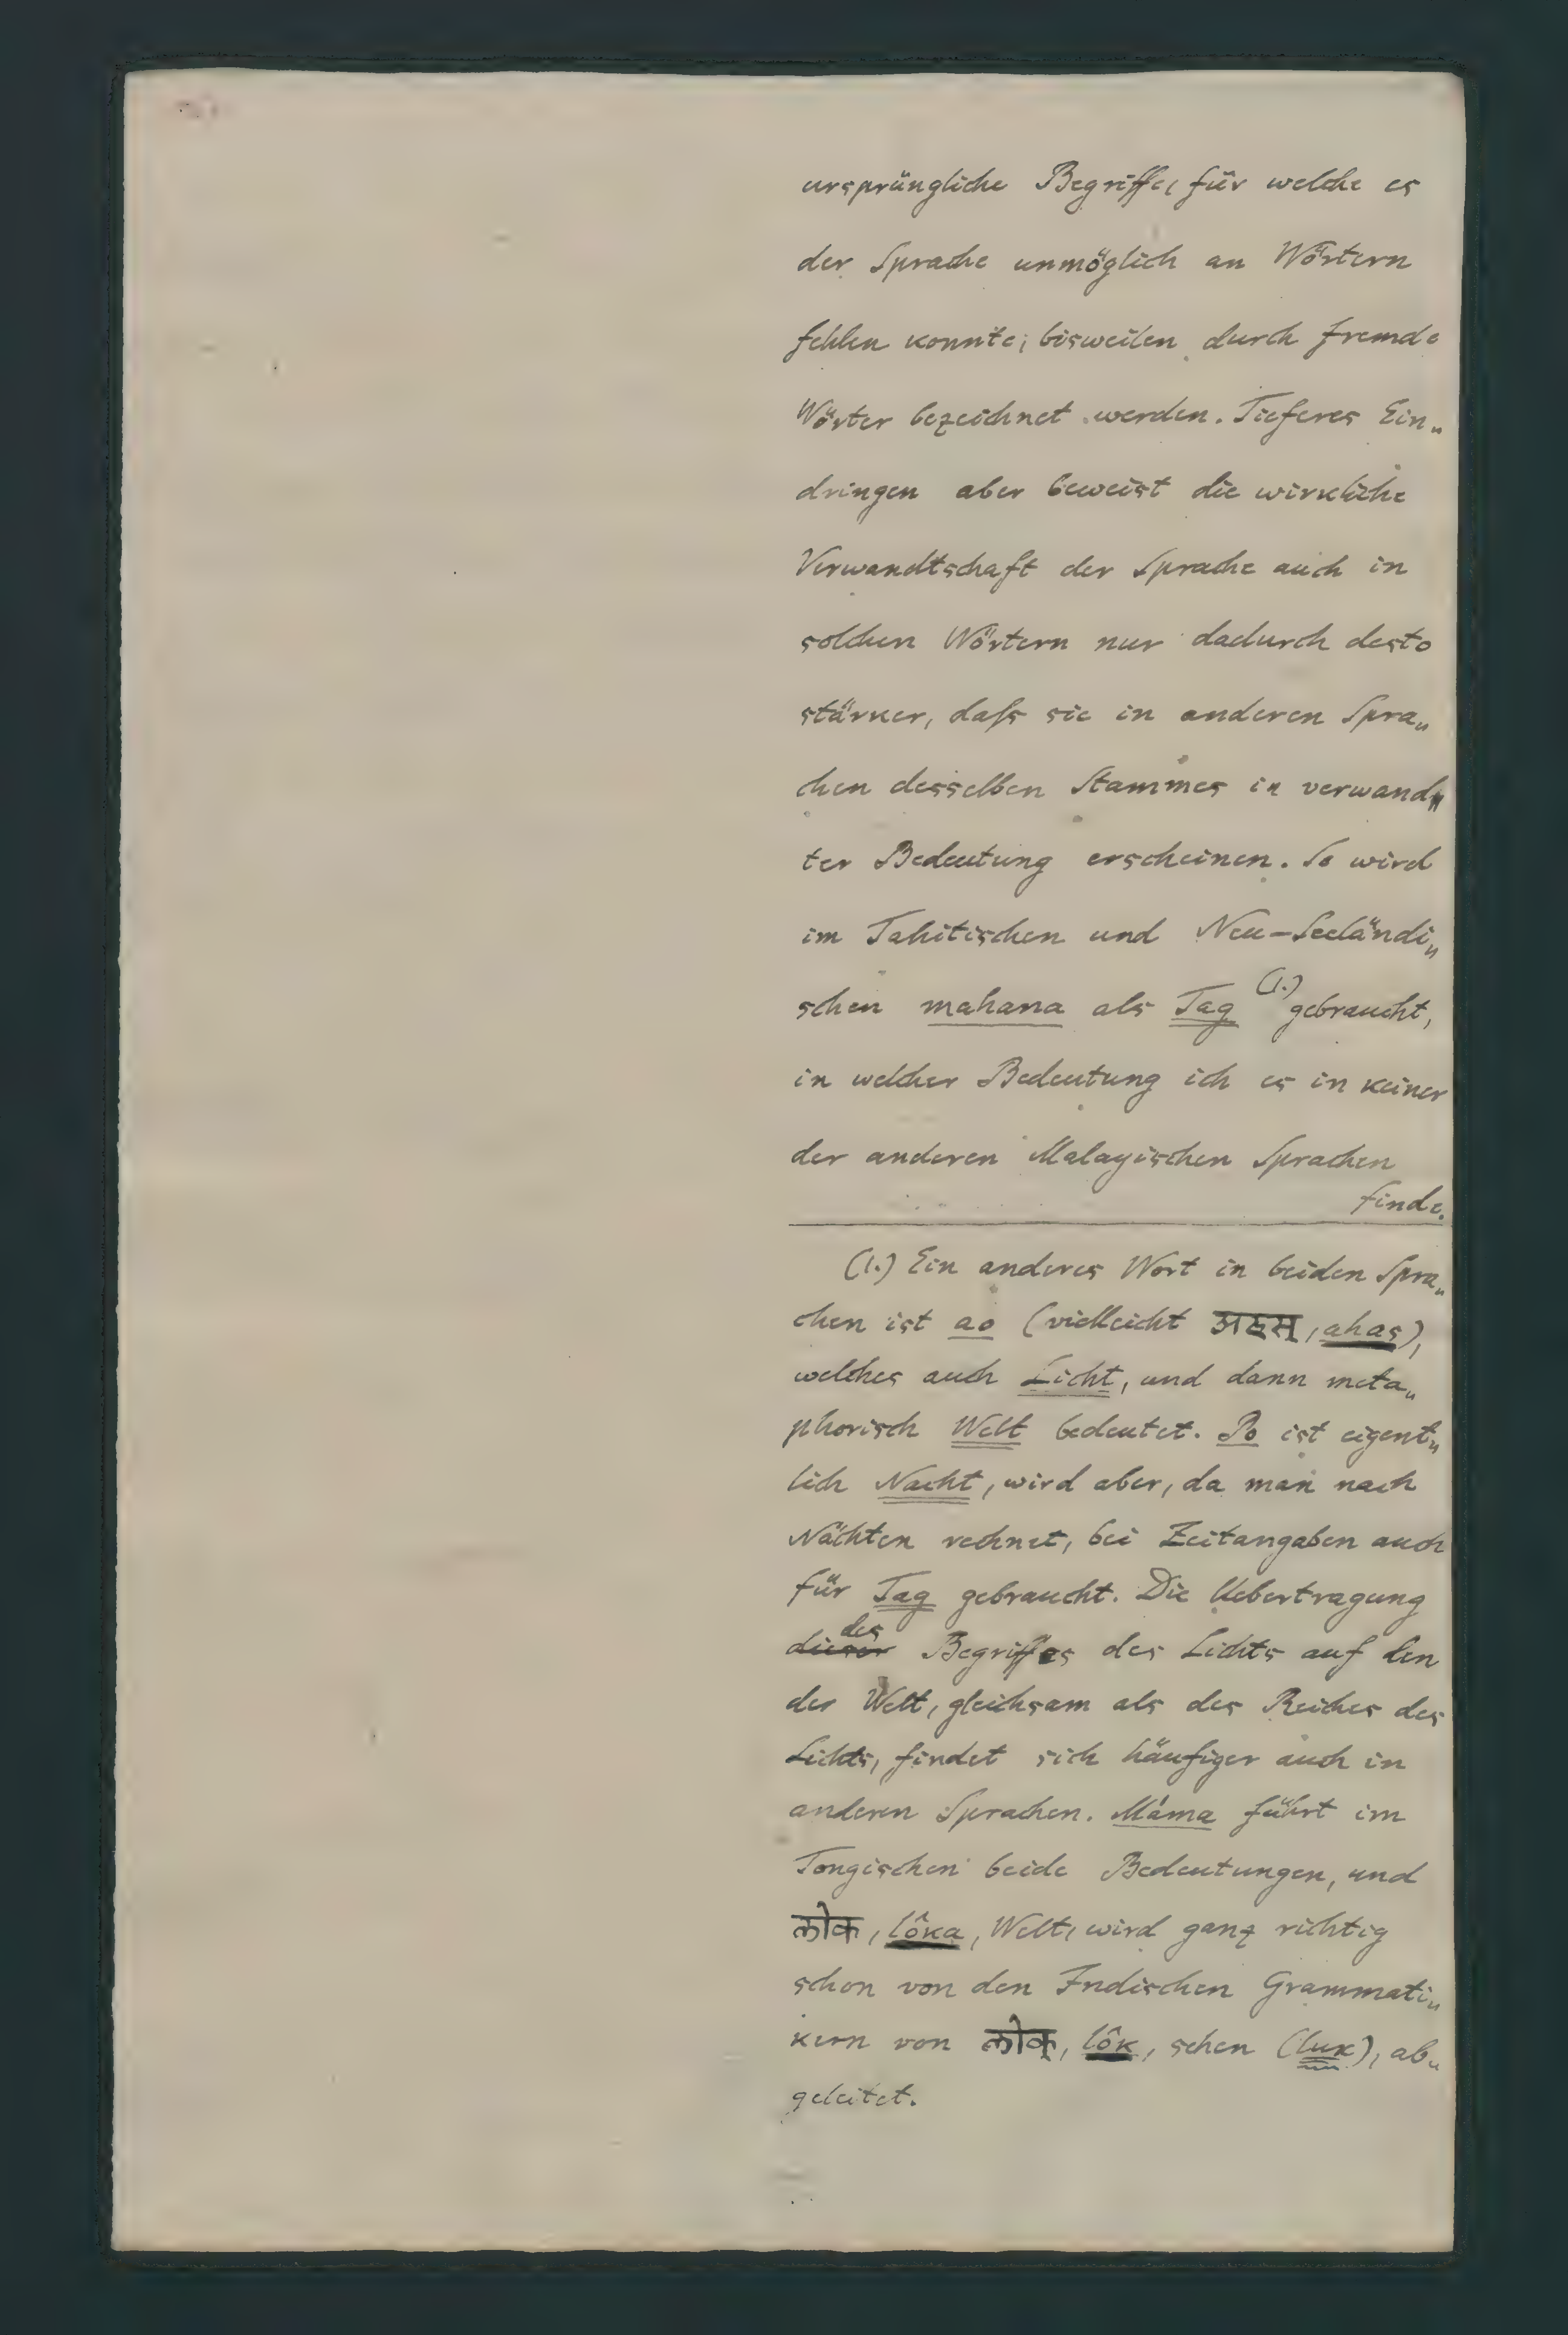 ursprüngliche Begriffe, für welche es
der Sprache unmöglich an Wörtern
fehlen konnte, bisweilen durch fremde
Wörter bezeichnet werden. Tieferes Ein„
dringen aber beweist die wirkliche
Verwandtschaft der Sprache auch in
solchen Wörtern nur dadurch desto
stärker, daſs sie in anderen Spra„
chen desselben Stammes in verwand„
ter Bedeutung erscheinen. So wird
im Tahitischen und Neu-Seeländi„
schen mahana als Tag (1.) gebraucht,
in welcher Bedeutung ich es in keiner
der anderen Malayischen Sprachen
finde.
(1.) Ein anderes Wort in beiden Spra„
chen ist ao (vielleicht अहस्, ahas),
welches auch Licht, und dann meta„
phorisch Welt bedeutet. Po ist eigent„
lich Nacht, wird aber, da man nach
Nächten rechnet, bei Zeitangaben auch
für Tag gebraucht. Die Uebertragung
dieser des Begriffes des Lichts auf den
der Welt, gleichsam als des Reiches des
Lichts, findet sich häufiger auch in
anderen Sprachen. Máma führt im
Tongischen beide Bedeutungen, und
लोक, lôka, Welt, wird ganz richtig
schon von den Indischen Grammati„
kern von लोक्, lôk, sehen (luk), ab„
geleitet.